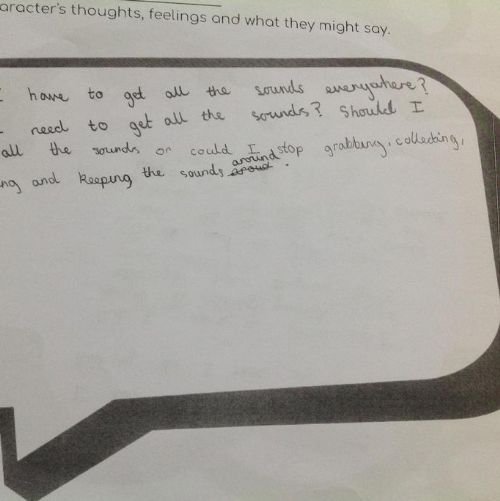 aracter's thoughts, feelings and what they might say.
I have to get all the sounds everyahere?
I need to get all the sounds? Should I
all the sounds or could I stop grabbing, collecting,
ng and keeping the sounds around aroud.